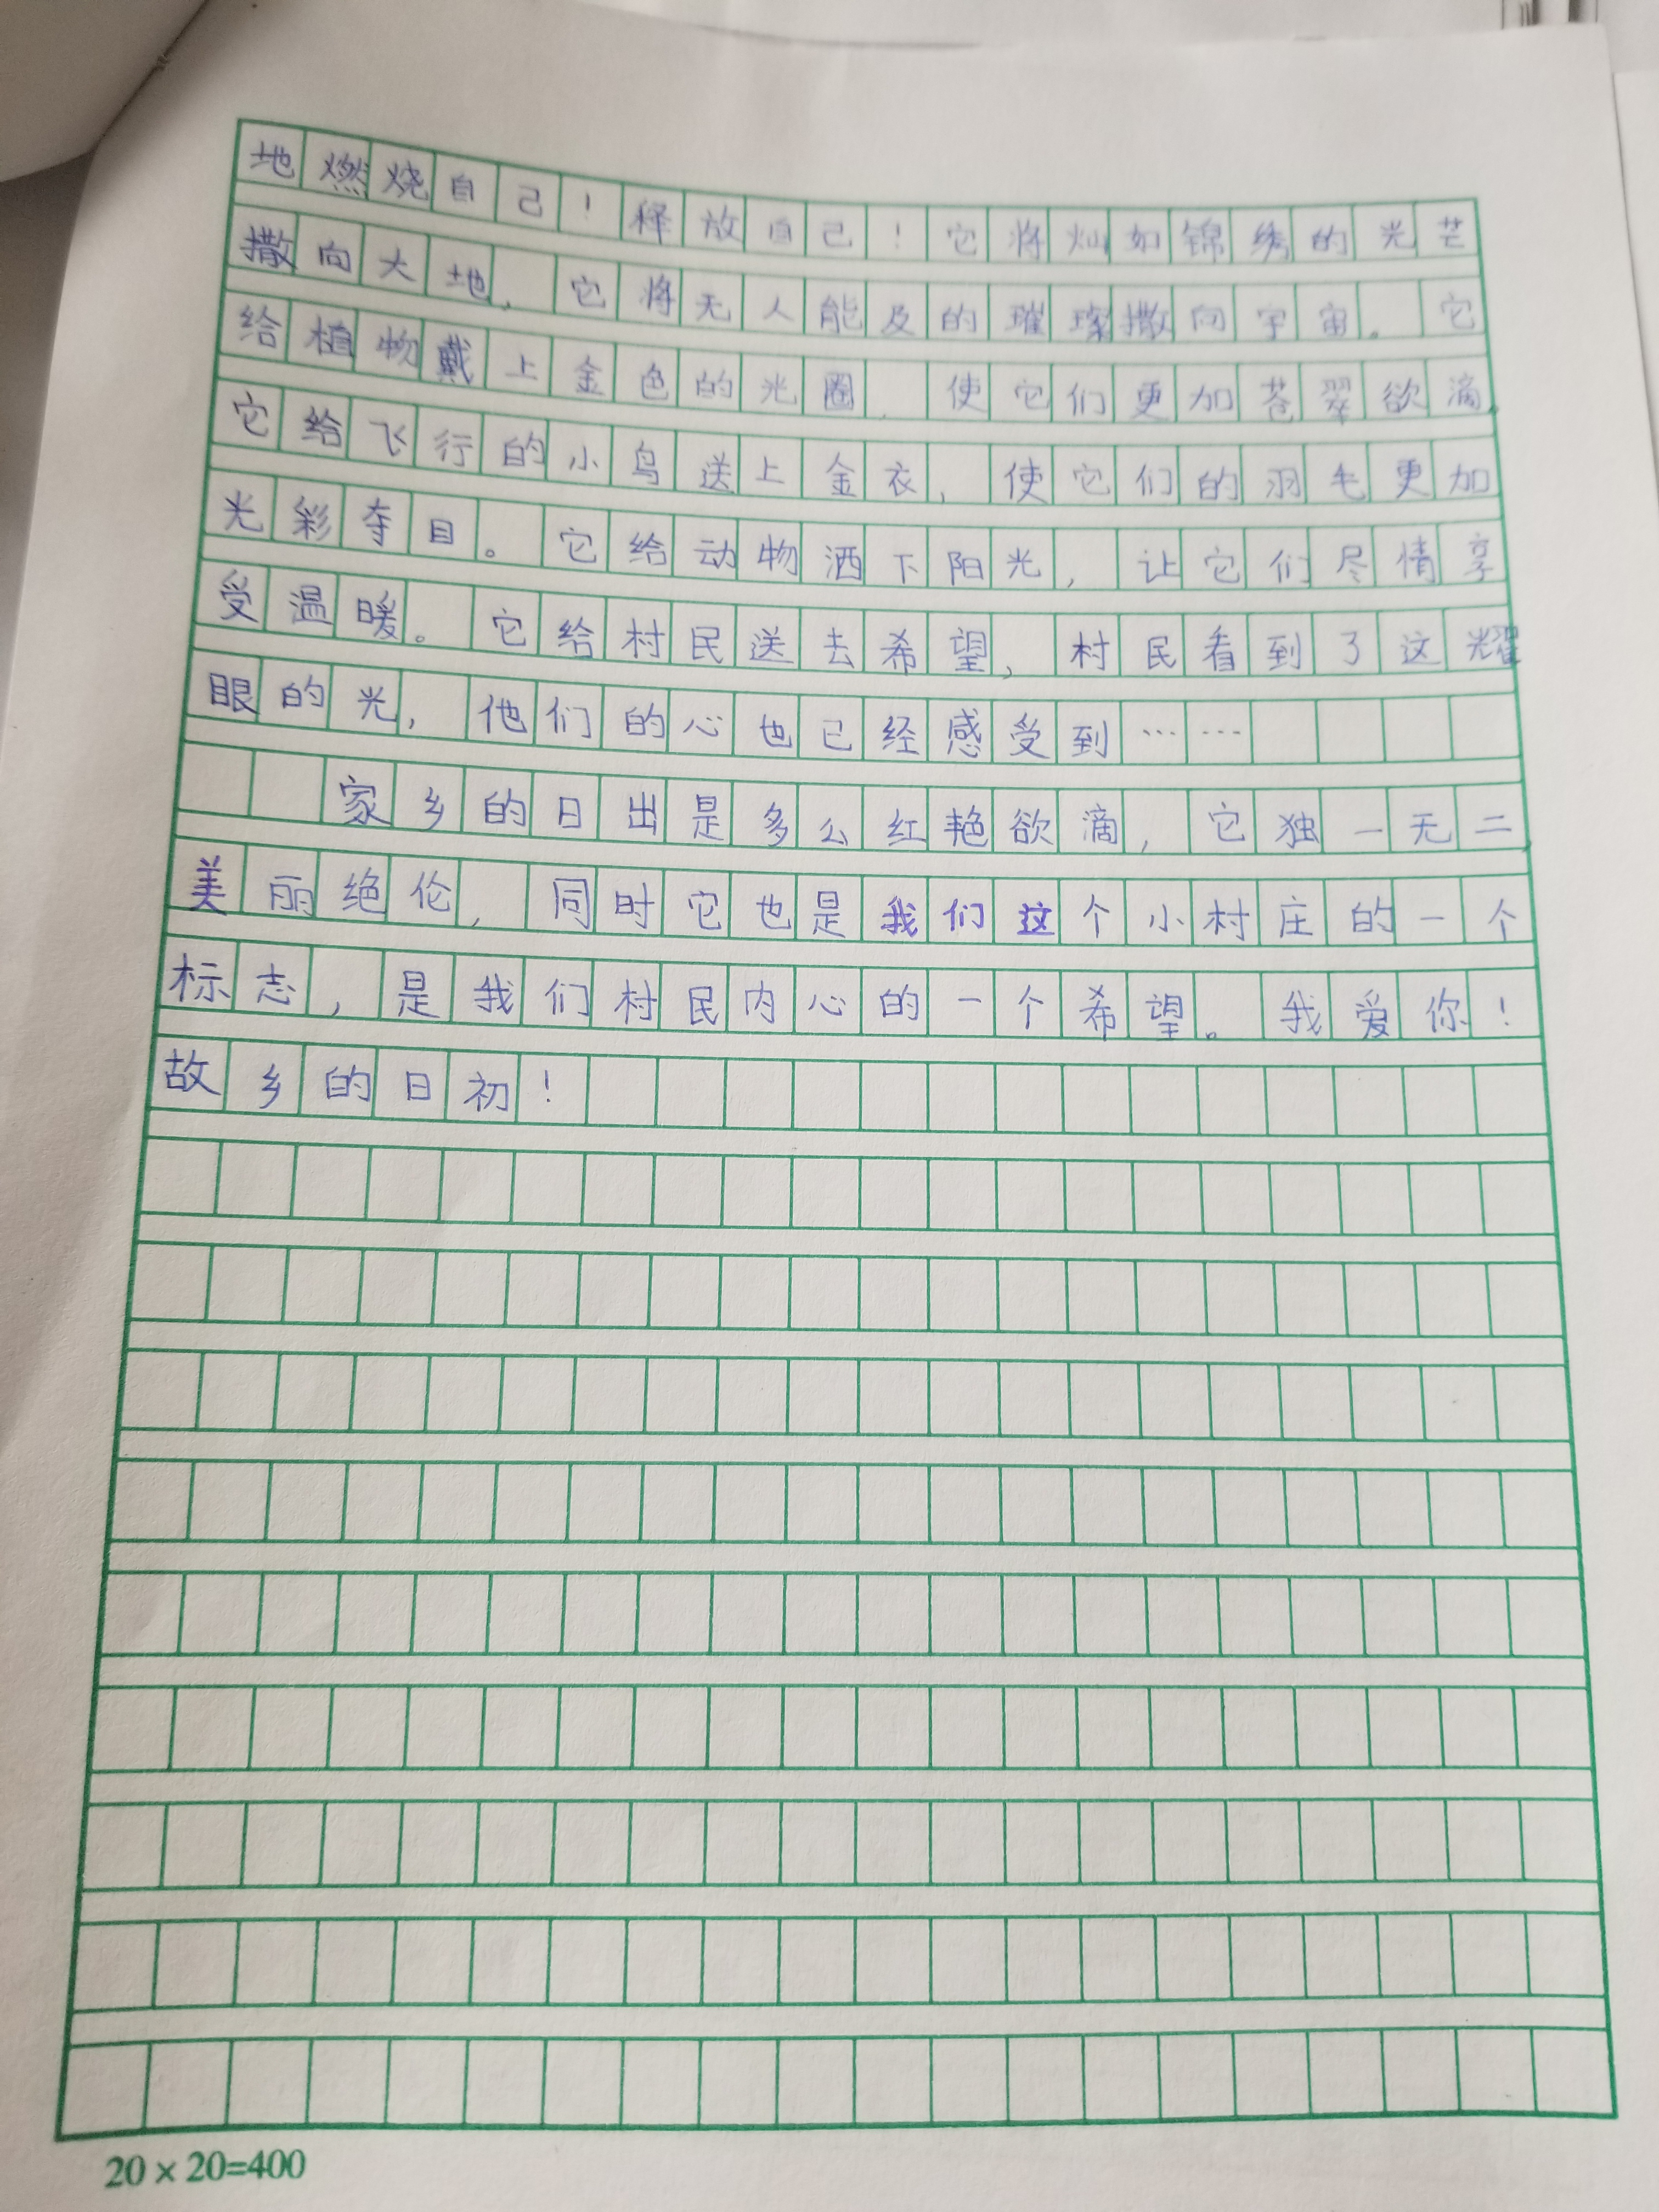 地燃烧自己！释放自己！它将灿如锦绣的光芒
撒向大地，它将无人能及的璀璨撒向宇宙。它
给植物戴上金色的光圈，使它们更加苍翠欲滴，
它给飞行的小鸟送上金衣，使它们的羽毛更加
光彩夺目。它给动物洒下阳光，让它们尽情享
受温暖。它给村民送去希望，村民看到了这耀
眼的光，他们的心也已经感受到……
家乡的日出是多么红艳欲滴，它独一无二，
美丽绝伦，同时它也是我们这个小村庄的一个
标志，是我们村民内心的一个希望。我爱你！
故乡的日初！
20×20=400